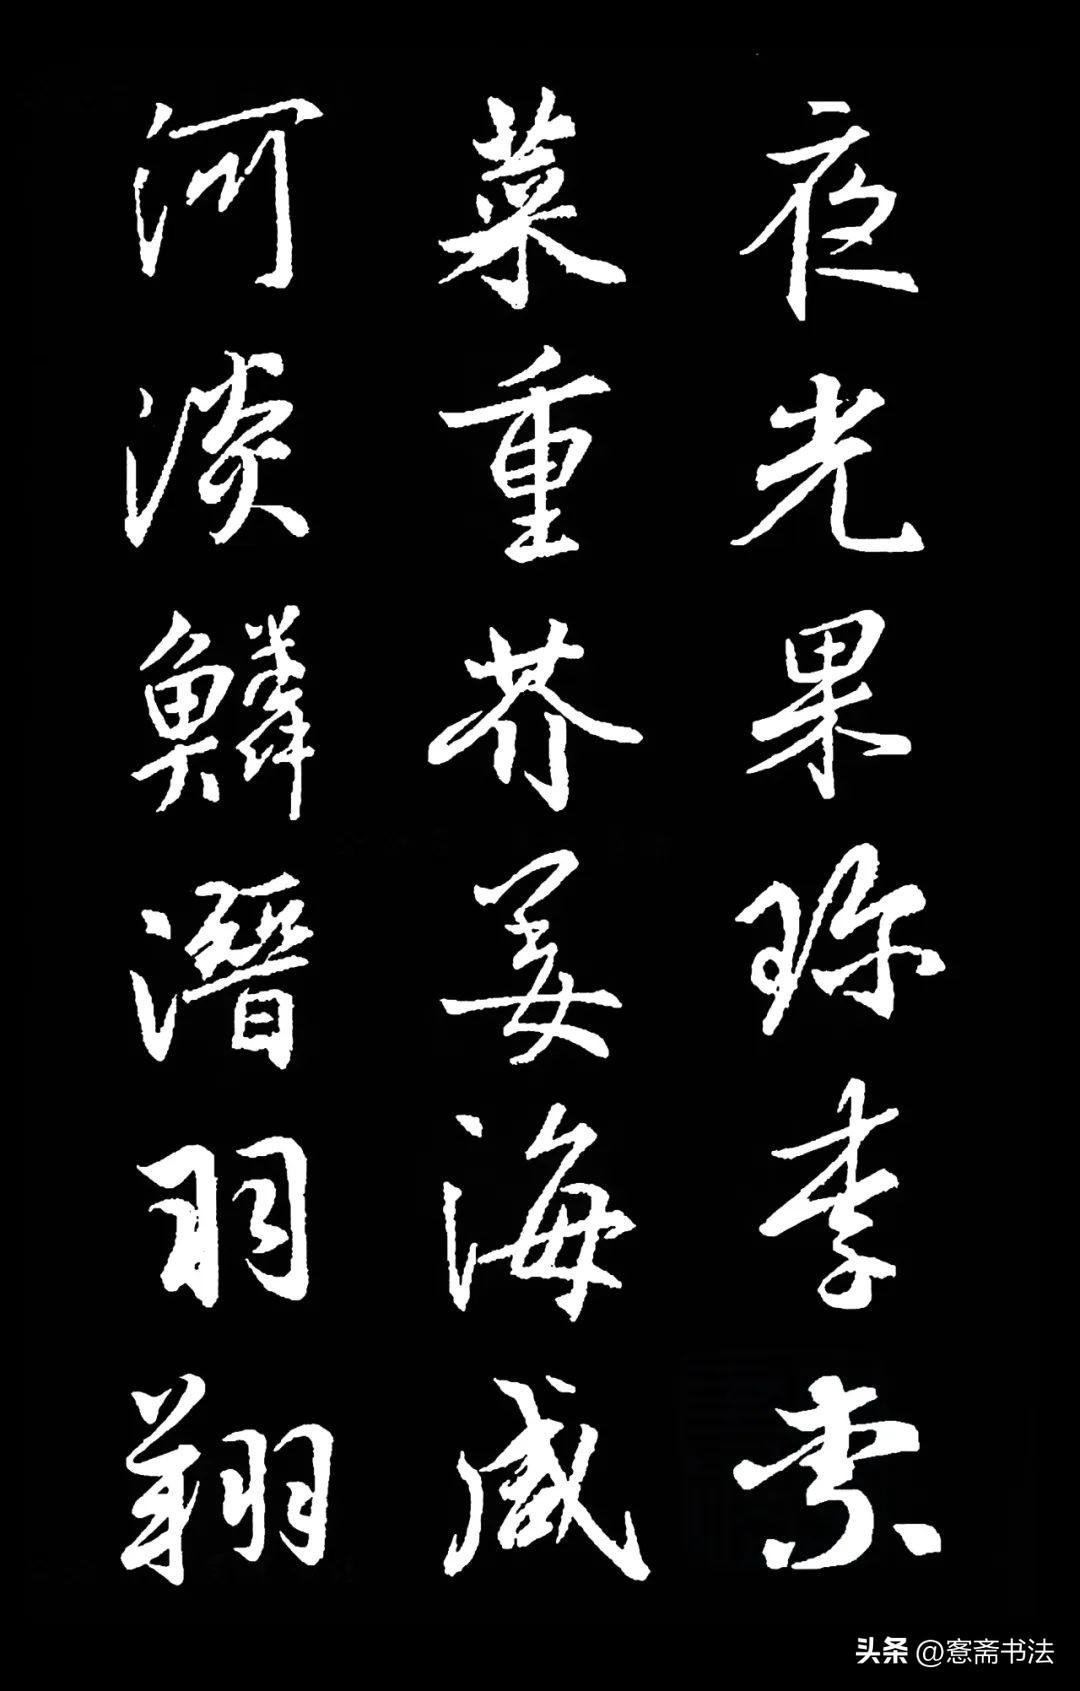 夜光果珍李柰
菜重芥姜海咸
河淡鱗潛羽翔
头条 @愙斋书法